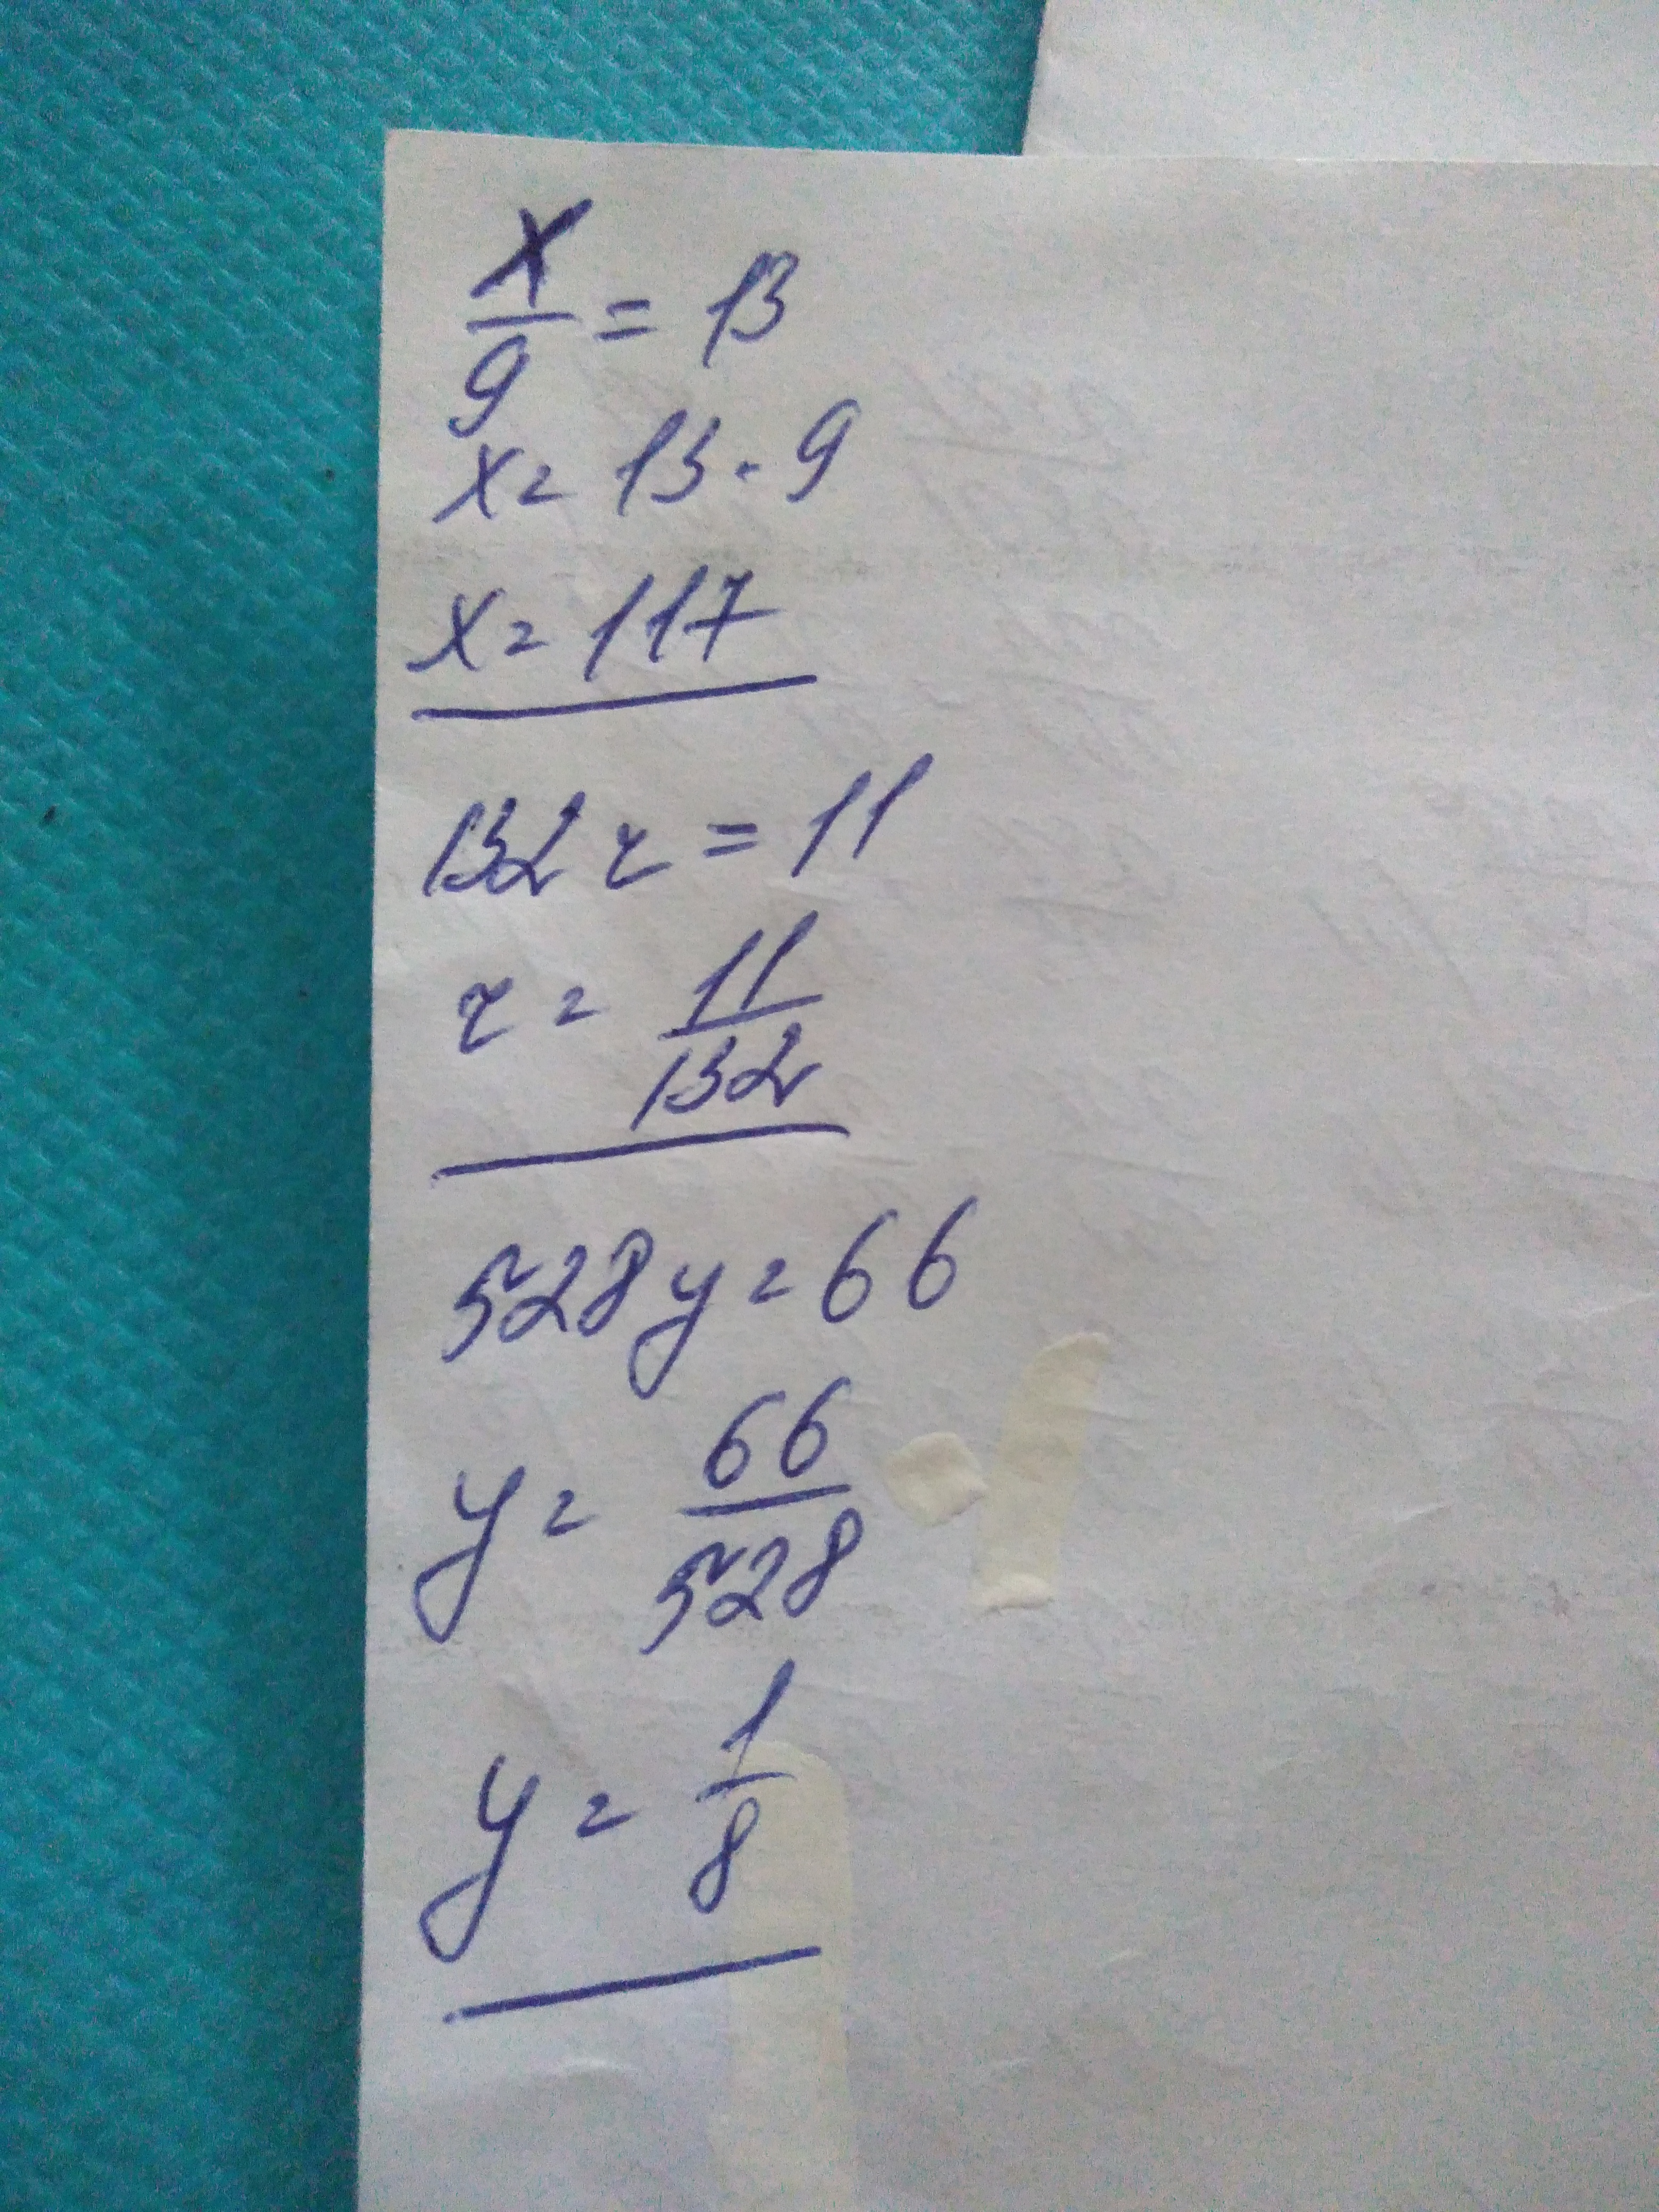 x/9 = 13
x = 13 · 9
x = 117
132 z = 11
z = 11/132
528y = 66
y = 66/528
y = 1/8